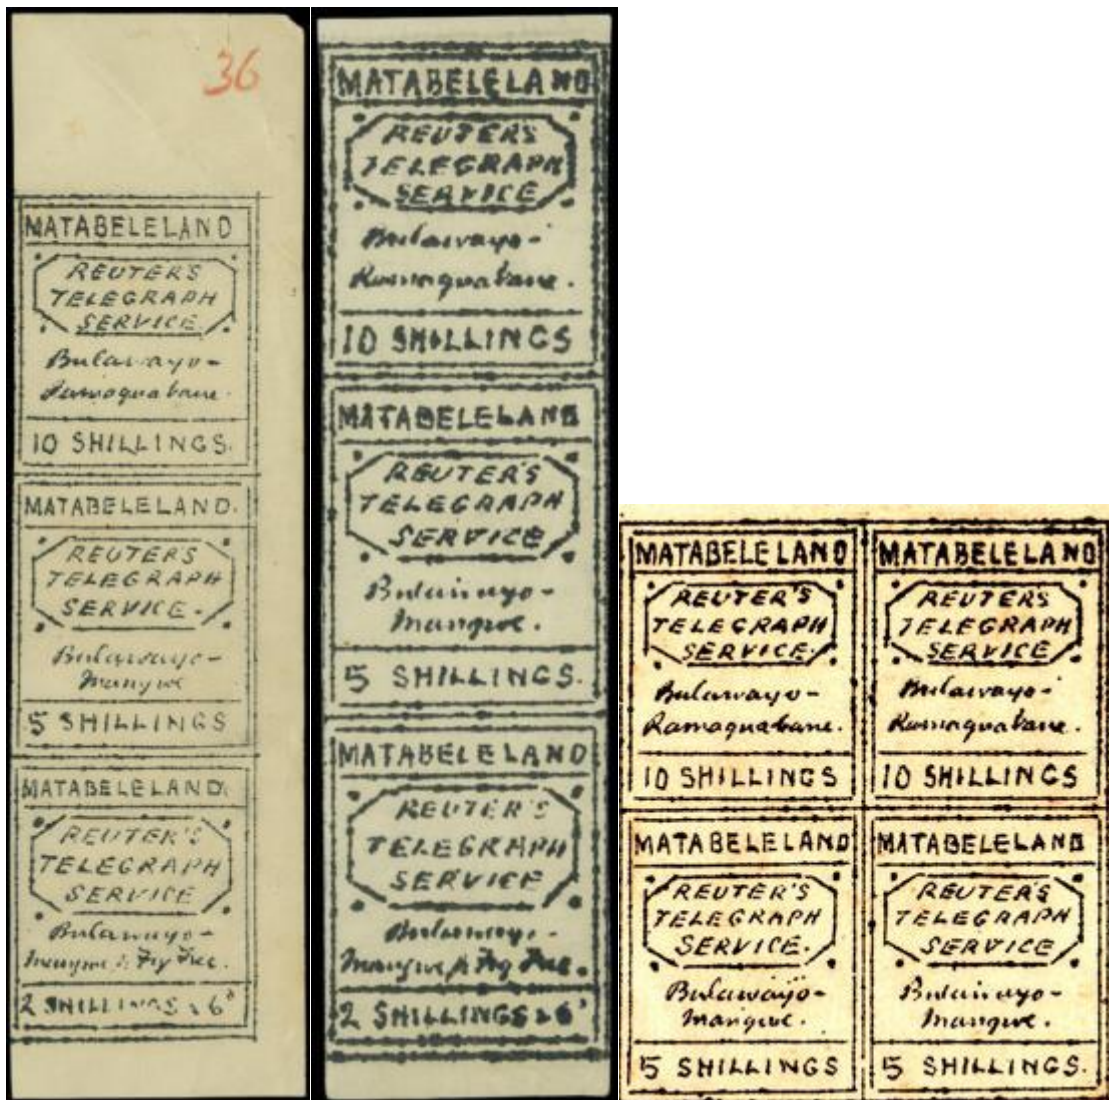 36
MATABELELAND
REUTER'S
TELEGRAPH
SERVICE
Bulawayo-
Ramaquabane.
10 SHILLINGS.
MATABELELAND.
REUTER'S
TELEGRAPH
SERVICE.
Bulawayo-
Mangwe
5 SHILLINGS
MATABELELAND.
REUTER'S
TELEGRAPH
SERVICE
Bulawayo-
Mangwe & Fig Tree.
2 SHILLINGS & 6ᵈ
MATABELELAND
REUTER'S
TELEGRAPH
SERVICE
Bulawayo-
Ramaquabane.
10 SHILLINGS
MATABELELAND
REUTER'S
TELEGRAPH
SERVICE
Bulawayo-
Mangwe.
5 SHILLINGS.
MATABELELAND
REUTER'S
TELEGRAPH
SERVICE
Bulawayo-
Mangwe & Fig Tree.
2 SHILLINGS & 6ᵈ
MATABELELAND
REUTER'S
TELEGRAPH
SERVICE.
Bulawayo-
Ramaquabane.
10 SHILLINGS
MATABELELAND
REUTER'S
TELEGRAPH
SERVICE
Bulawayo-
Ramaquabane.
10 SHILLINGS
MATABELELAND
REUTER'S
TELEGRAPH
SERVICE.
Bulawayo-
Mangwe.
5 SHILLINGS
MATABELELAND
REUTER'S
TELEGRAPH
SERVICE
Bulawayo-
Mangwe.
5 SHILLINGS.